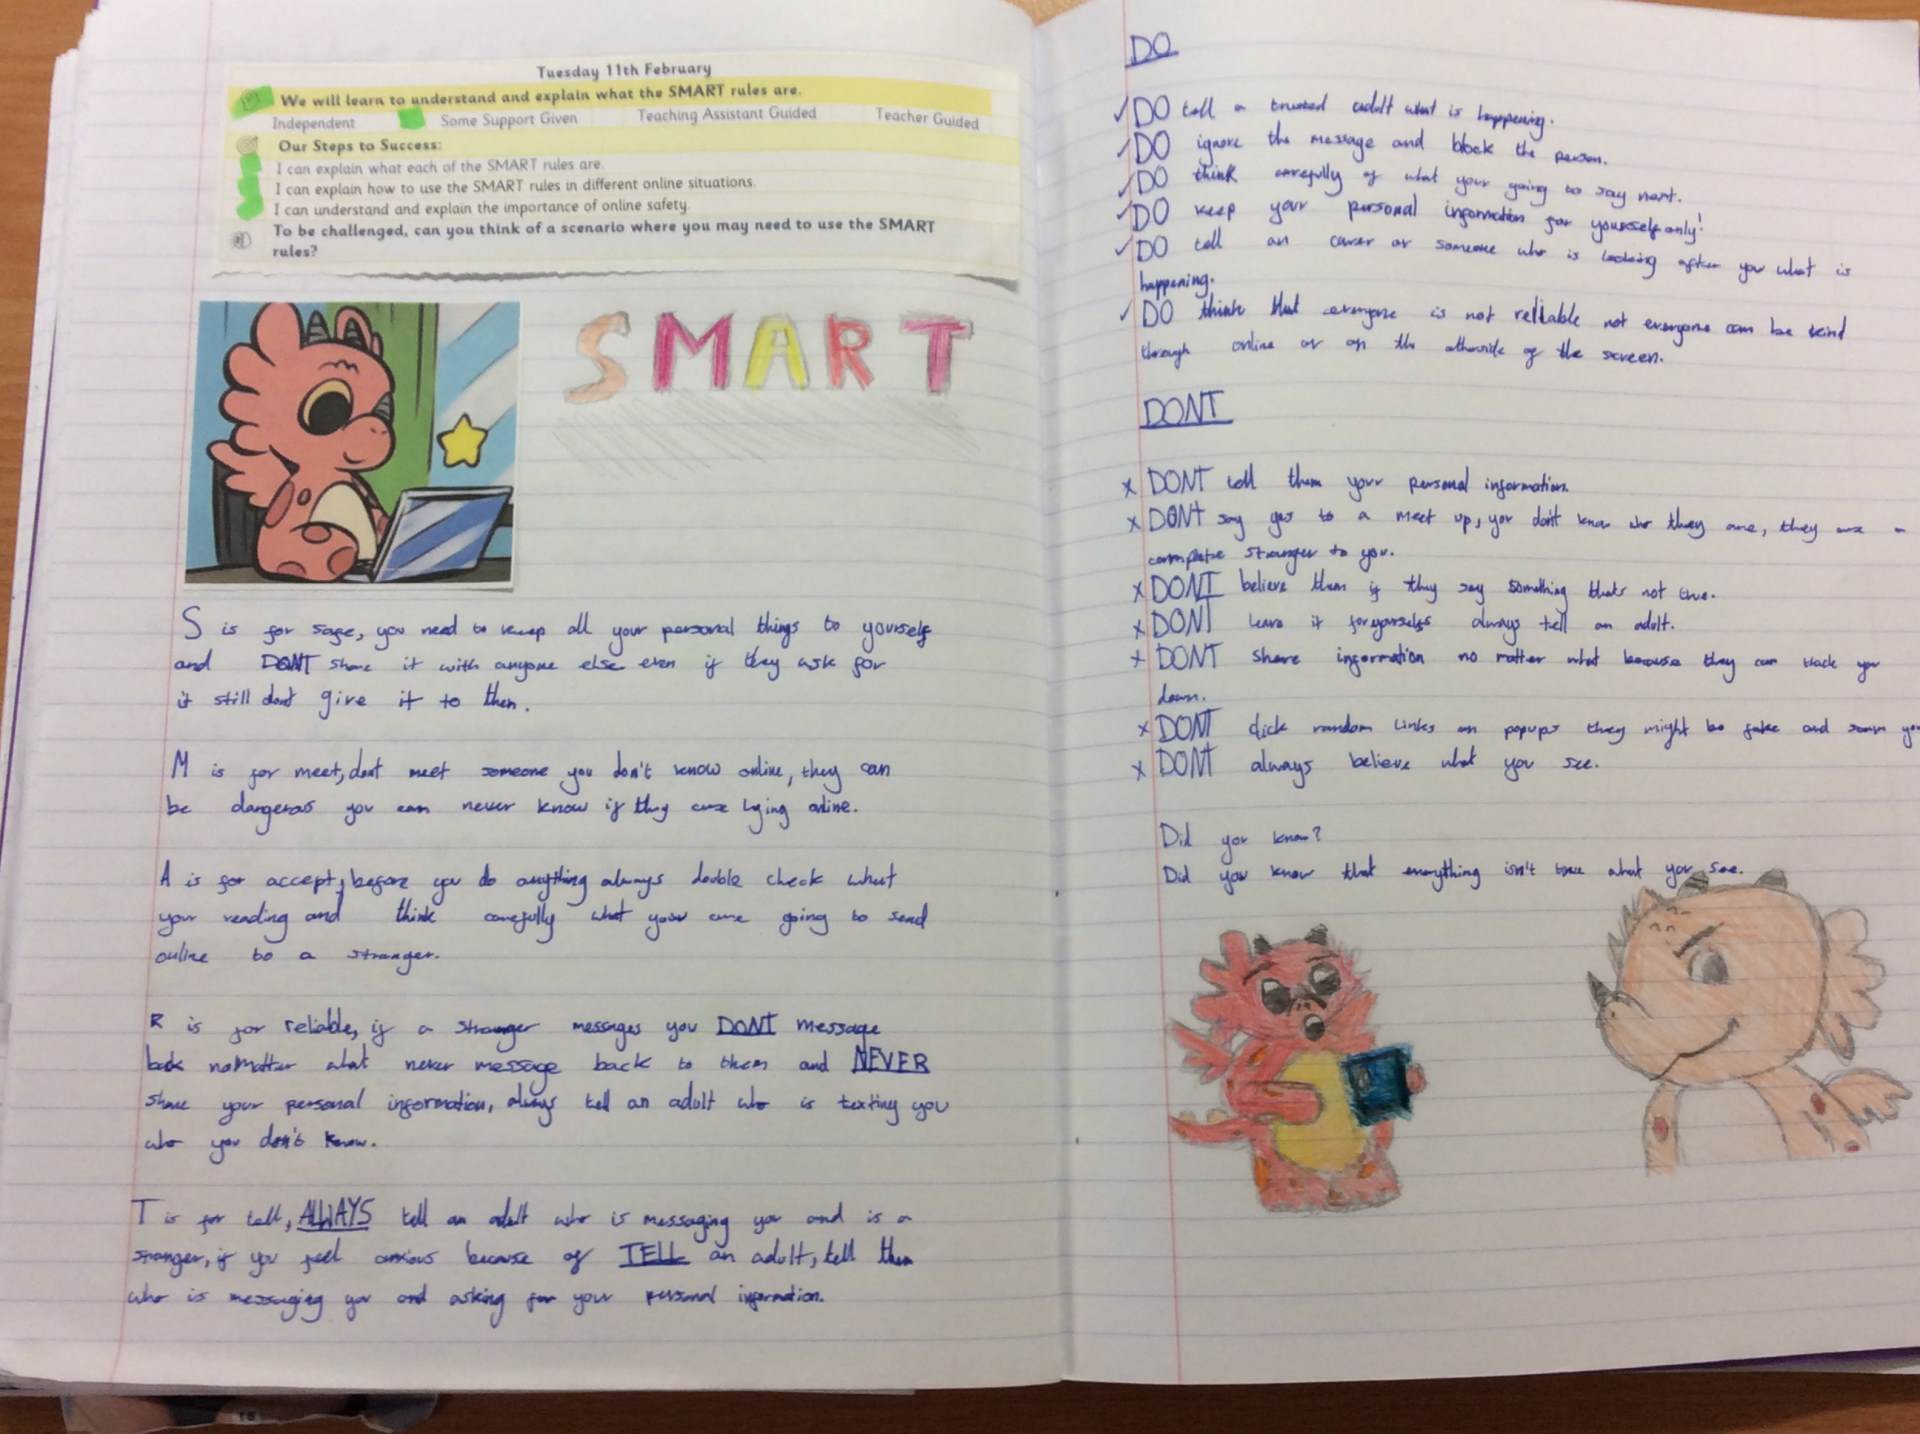 Tuesday 11th February
We will learn to understand and explain what the SMART rules are.
Independent Some Support Given Teaching Assistant Guided Teacher Guided
Our Steps to Success:
I can explain what each of the SMART rules are.
I can explain how to use the SMART rules in different online situations.
I can understand and explain the importance of online safety.
To be challenged, can you think of a scenario where you may need to use the SMART
rules?
SMART
S is for safe, you need to keep all your personal things to yourself
and DONT share it with anyone else even if they ask for
it still dont give it to them.
M is for meet, dont meet someone you don't know online, they can
be dangerous you can never know if they are lying online.
A is for accept, before you do anything always double check what
your reading and think carefully what your are going to send
online to a stranger.
R is for reliable, if a stranger messages you DONT message
back nomatter what never message back to them and NEVER
share your personal information, always tell an adult who is texting you
who you don't know.
T is for tell, ALWAYS tell an adult who is messaging you and is a
stranger, if you feel anxious because of TELL an adult, tell them
who is messaging you and asking for your personal information.
DO
✓ DO tell a trusted adult what is happening.
✓ DO ignore the message and block the person.
✓ DO think carefully of what your going to say next.
✓ DO keep your personal information for yourself only!
✓ DO tell an carer or someone who is looking after you what is
happening.
✓ DO think that everyone is not reliable not everyone can be kind
through online or on the otherside of the screen.
DONT
x DONT tell them your personal information.
x DONT say yes to a meet up, you don't know who they are, they are a
complete stranger to you.
x DONT believe them if they say something thats not true.
x DONT leave it for yourselfs always tell an adult.
x DONT share information no matter what because they can track you
down.
x DONT click random links on popups they might be fake and scam you
x DONT always believe what you see.
Did you know?
Did you know that everything isn't true what you see.
18